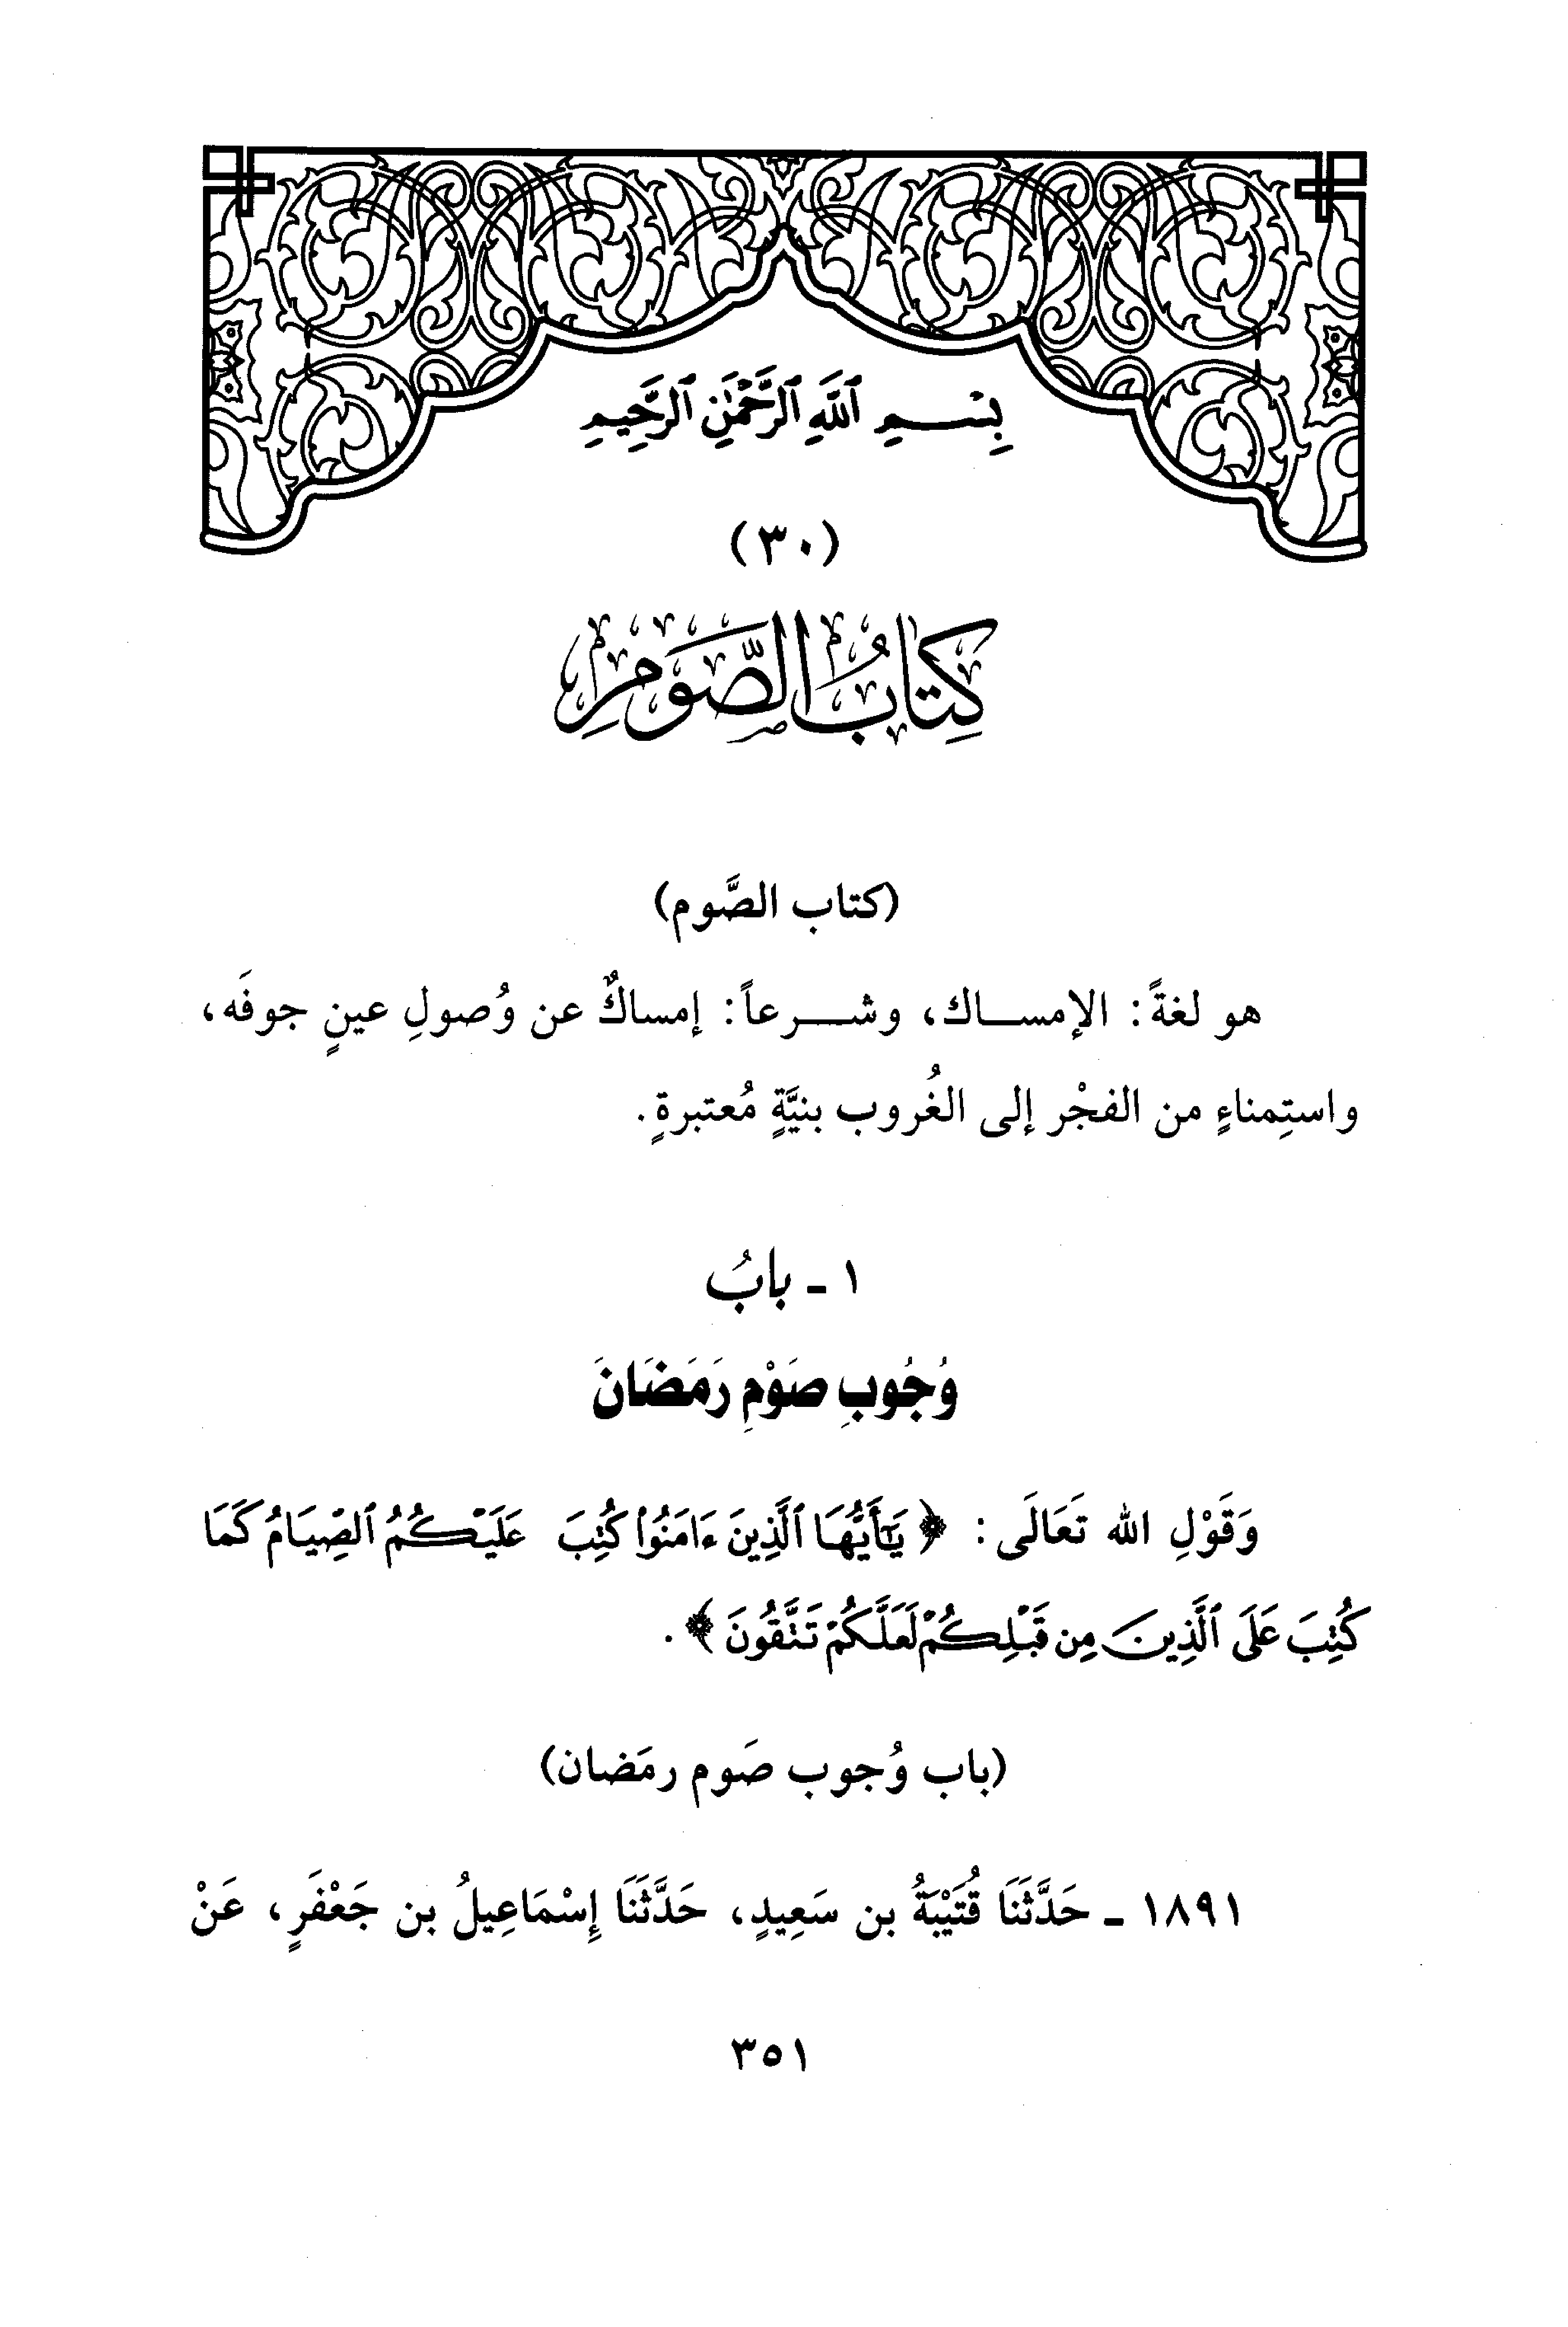 بِسْمِ ٱللَّهِ ٱلرَّحْمَٰنِ ٱلرَّحِيمِ
(٣٠)
كِتَابُ الصَّوْمِ
(كتاب الصَّوم)
هو لغةً: الإمساك، وشرعاً: إمساكٌ عن وُصولِ عينٍ جوفَه،
واستِمناءٍ من الفجْر إلى الغُروب بنيَّةٍ مُعتبرةٍ.
١ - بابُ
وُجُوبِ صَوْمِ رَمَضَانَ
وَقَوْلِ الله تَعَالَى: ﴿يَٰٓأَيُّهَا ٱلَّذِينَ ءَامَنُوا۟ كُتِبَ عَلَيْكُمُ ٱلصِّيَامُ كَمَا
كُتِبَ عَلَى ٱلَّذِينَ مِن قَبْلِكُمْ لَعَلَّكُمْ تَتَّقُونَ﴾.
(باب وُجوب صَوم رمَضان)
١٨٩١ - حَدَّثَنَا قُتَيْبَةُ بن سَعِيدٍ، حَدَّثَنَا إِسْمَاعِيلُ بن جَعْفَرٍ، عَنْ
٣٥١